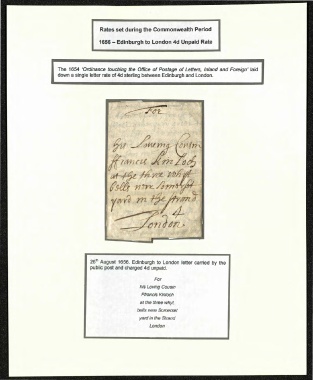 Rates set during the Commonwealth Period
1656 – Edinburgh to London 4d Unpaid Rate
The 1654 'Ordinance touching the Office of Postage of Letters, Inland and Foreign' laid
down a single letter rate of 4d sterling between Edinburgh and London.
For
his Loveing Cousin
ffrancis Kinloch
at the three whyt
bells nere Somerset
yard in the strand
4
London.
26th August 1656. Edinburgh to London letter carried by the
public post and charged 4d unpaid.
For
his Loving Cousin
Ffrancis Kinloch
at the three whyt
bells nere Somerset
yard in the Strand
London